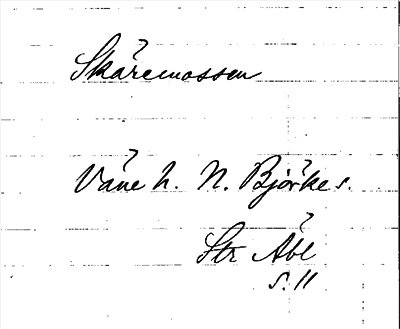 Skäremossen
Väne h. N. Björke s.
Str Åbl
s. 11